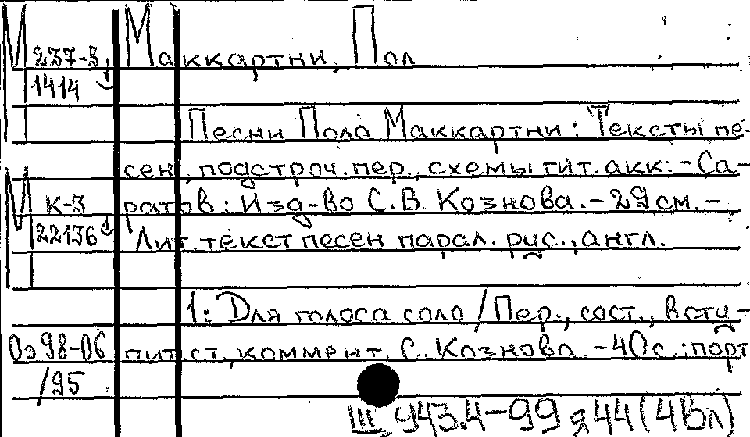 М 237-3 Маккартни, Пол
1414
Песни Пола Маккартни: Тексты пе-
сен, подстроч. пер., схемы гит. акк. - Са-
М К-3 ратов: Изд-во С.В. Кознова. - 29 см. -
22136 Лит. текст песен парал. рус., англ.
1: Для голоса соло / Пер., сост., всту-
Оэ 98-06 пит. ст., коммент. С. Кознова. - 40 с.: порт
/95
Ш 943.4-99 44 (4Вл)